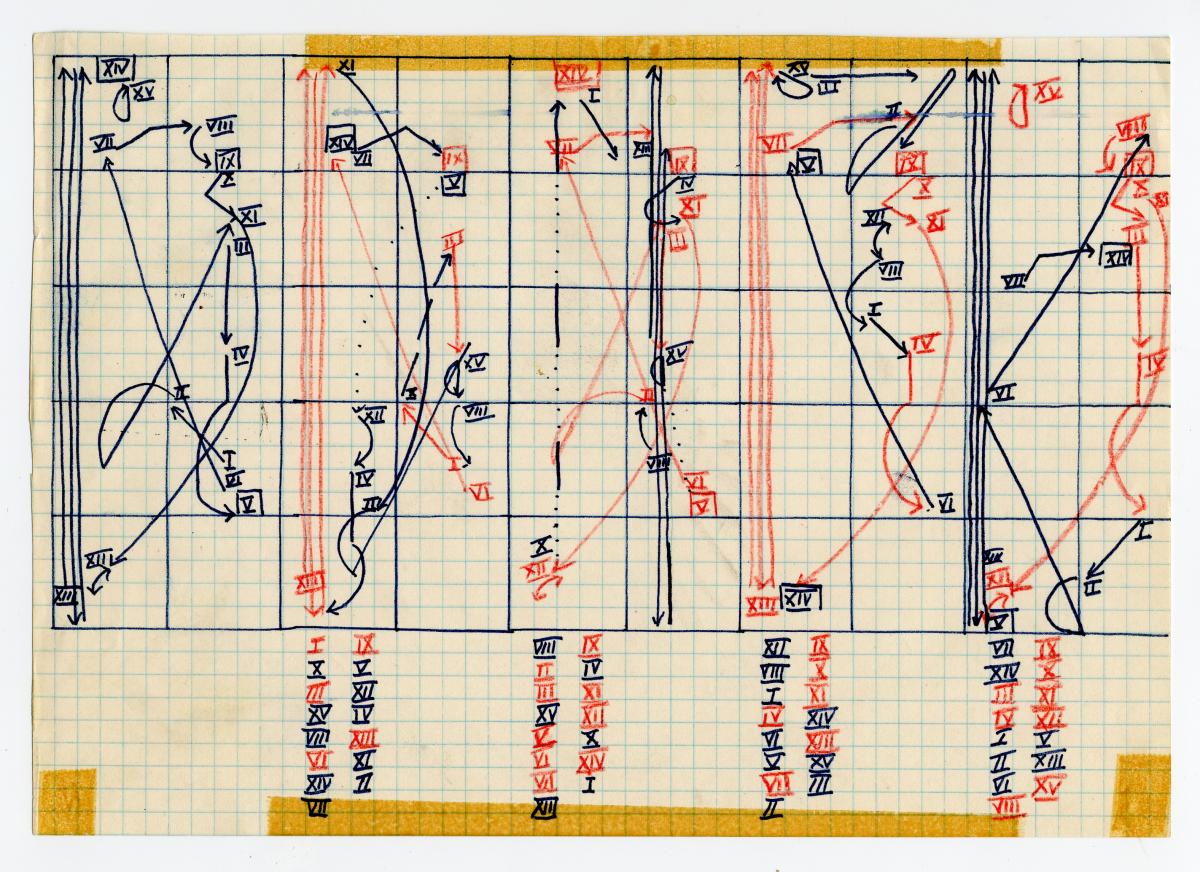 XIV
XV
VII
VIII
IX
X
XI
III
IV
II
I
VI
V
XII
XIII
XI
XIV
VII
IX
V
III
XV
X
XII
VIII
I
IV
VI
II
XIII
XIV
I
VII
XIII
IX
IV
XI
III
XV
II
VIII
VI
V
X
XII
XV
III
II
VII
V
IX
X
XII
XI
VIII
I
IV
VI
XIII
XIV
XV
VIII
IX
X
XI
III
XIV
VII
IV
VI
I
XIII
XII
II
V
I IX
X V
III XII
XV IV
VIII XIII
VI XI
XIV II
VII
VIII IX
II IV
III XI
XV XII
V X
VI XIV
VII I
XIII
XII IX
VIII X
I XI
IV XIV
VI XIII
V XV
VII III
II
VII IX
XIV X
III XI
IV XII
I V
II XIII
VI XV
VIII